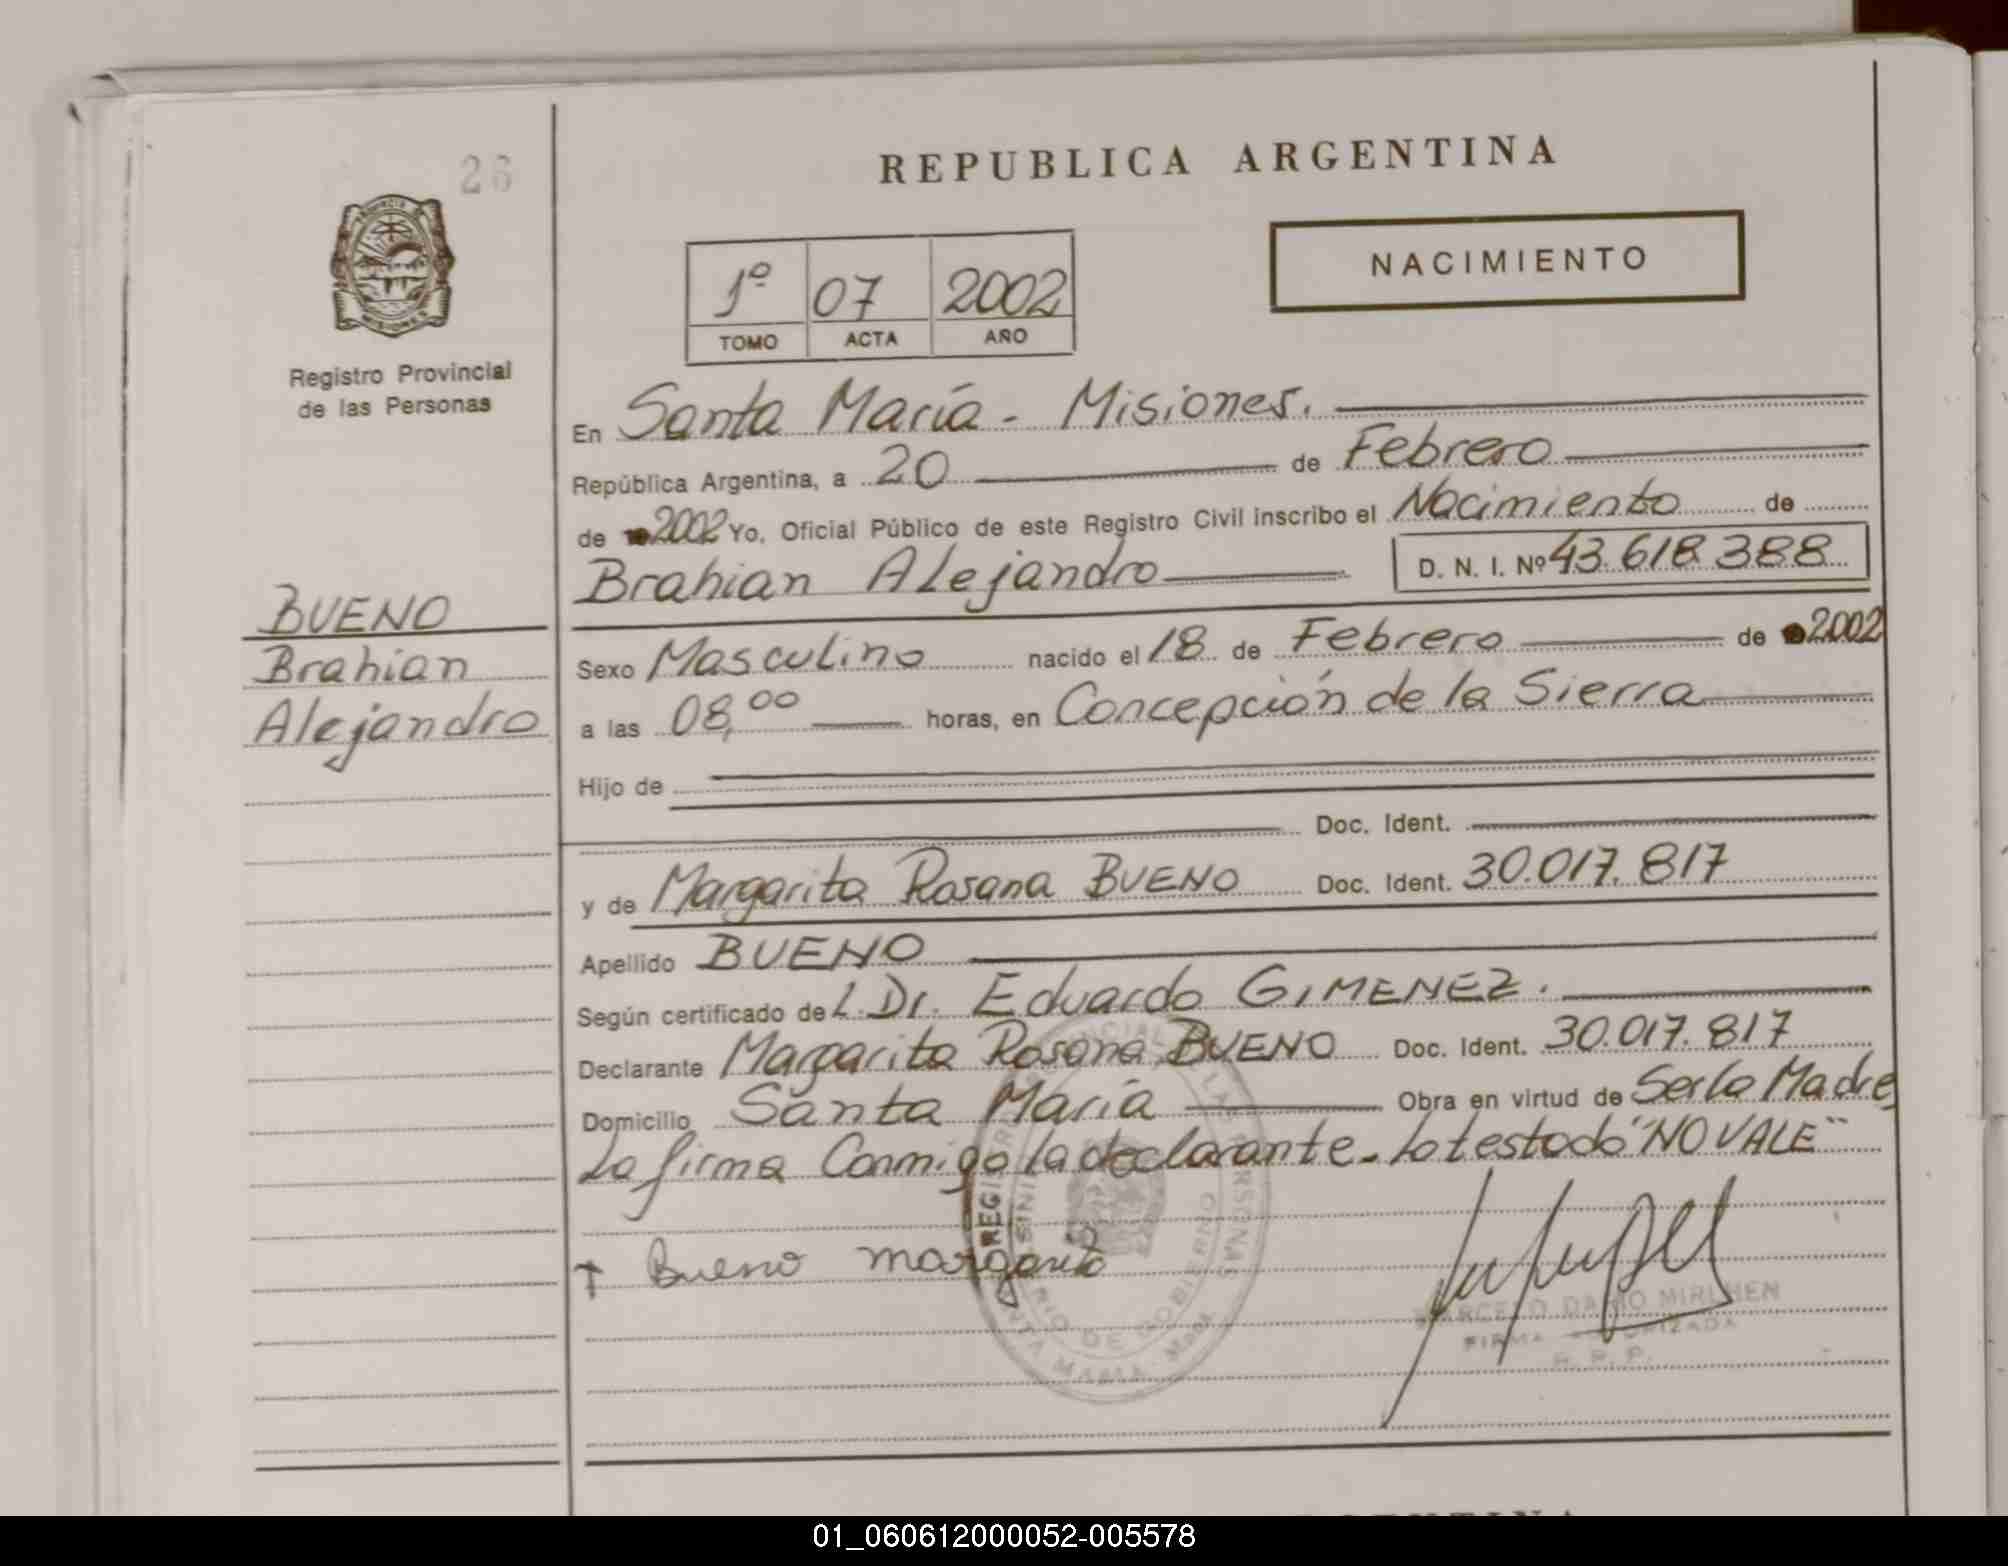 26
REPUBLICA ARGENTINA
PROVINCIA DE MISIONES
Registro Provincial
de las Personas
1º 07 2002
TOMO ACTA AÑO
NACIMIENTO
En Santa María - Misiones.
República Argentina, a 20 de Febrero
de 2002 Yo, Oficial Público de este Registro Civil inscribo el Nacimiento de
Brahian Alejandro D. N. I. Nº 43.618.388
BUENO
Brahian
Alejandro
Sexo Masculino nacido el 18 de Febrero de 2002
a las 08,00 horas, en Concepción de la Sierra
Hijo de
Doc. Ident.
y de Margarita Rosana BUENO Doc. Ident. 30.017.817
Apellido BUENO
Según certificado de L. Dr. Eduardo GIMENEZ.
Declarante Margarita Rosana BUENO Doc. Ident. 30.017.817
Domicilio Santa María Obra en virtud de Ser la Madre
La firma Conmigo la declarante. Lo testado "NO VALE"
Bueno margarita
REGISTRO PROVINCIAL DE LAS PERSONAS
MINISTERIO DE GOBIERNO
SANTA MARIA - Mnes.
MARCELO DARIO MIRUHEN
FIRMA AUTORIZADA
R. P. P.
01_060612000052-005578